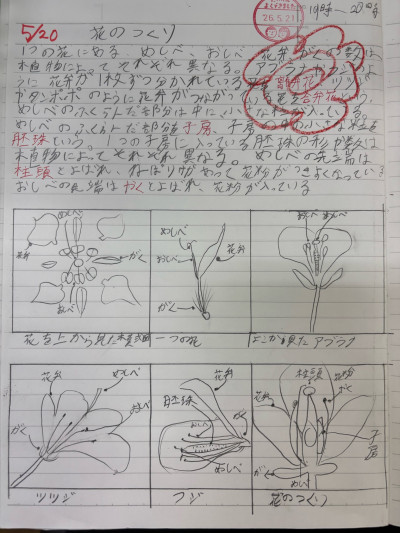 5/20 花のつくり 19時〜20時
26.5.21
1つの花にある、めしべ、おしべ、花弁、がくの数は
植物によってそれぞれ異なる。アブラナ
うに花弁が1枚ずつ分かれている
ツツジ
やタンポポのように花弁がつながっている 合弁花という。
めしべのふくらんだ部分は中に小さな 入っている。
めしべのふくらんだ部分を子房、子房の中の小さな粒を
胚珠という。1つの子房に入っている胚珠の数は
植物によってそれぞれ異なる。めしべの先端は
柱頭とよばれ、ねばりけがあって花粉がつきよくなっている
おしべの先端は とよばれ、花粉が入っている
めしべ
花弁
がく
おしべ
花を上から見た模式図
めしべ
おしべ
花弁
がく
一つの花
おしべ めしべ
よこから見たアブラナ
花弁
めしべ
おしべ
がく
ツツジ
花弁
胚珠
がく
おしべ
めしべ
フジ
柱頭
花弁
がく
子房
がく
めしべ
花のつくり